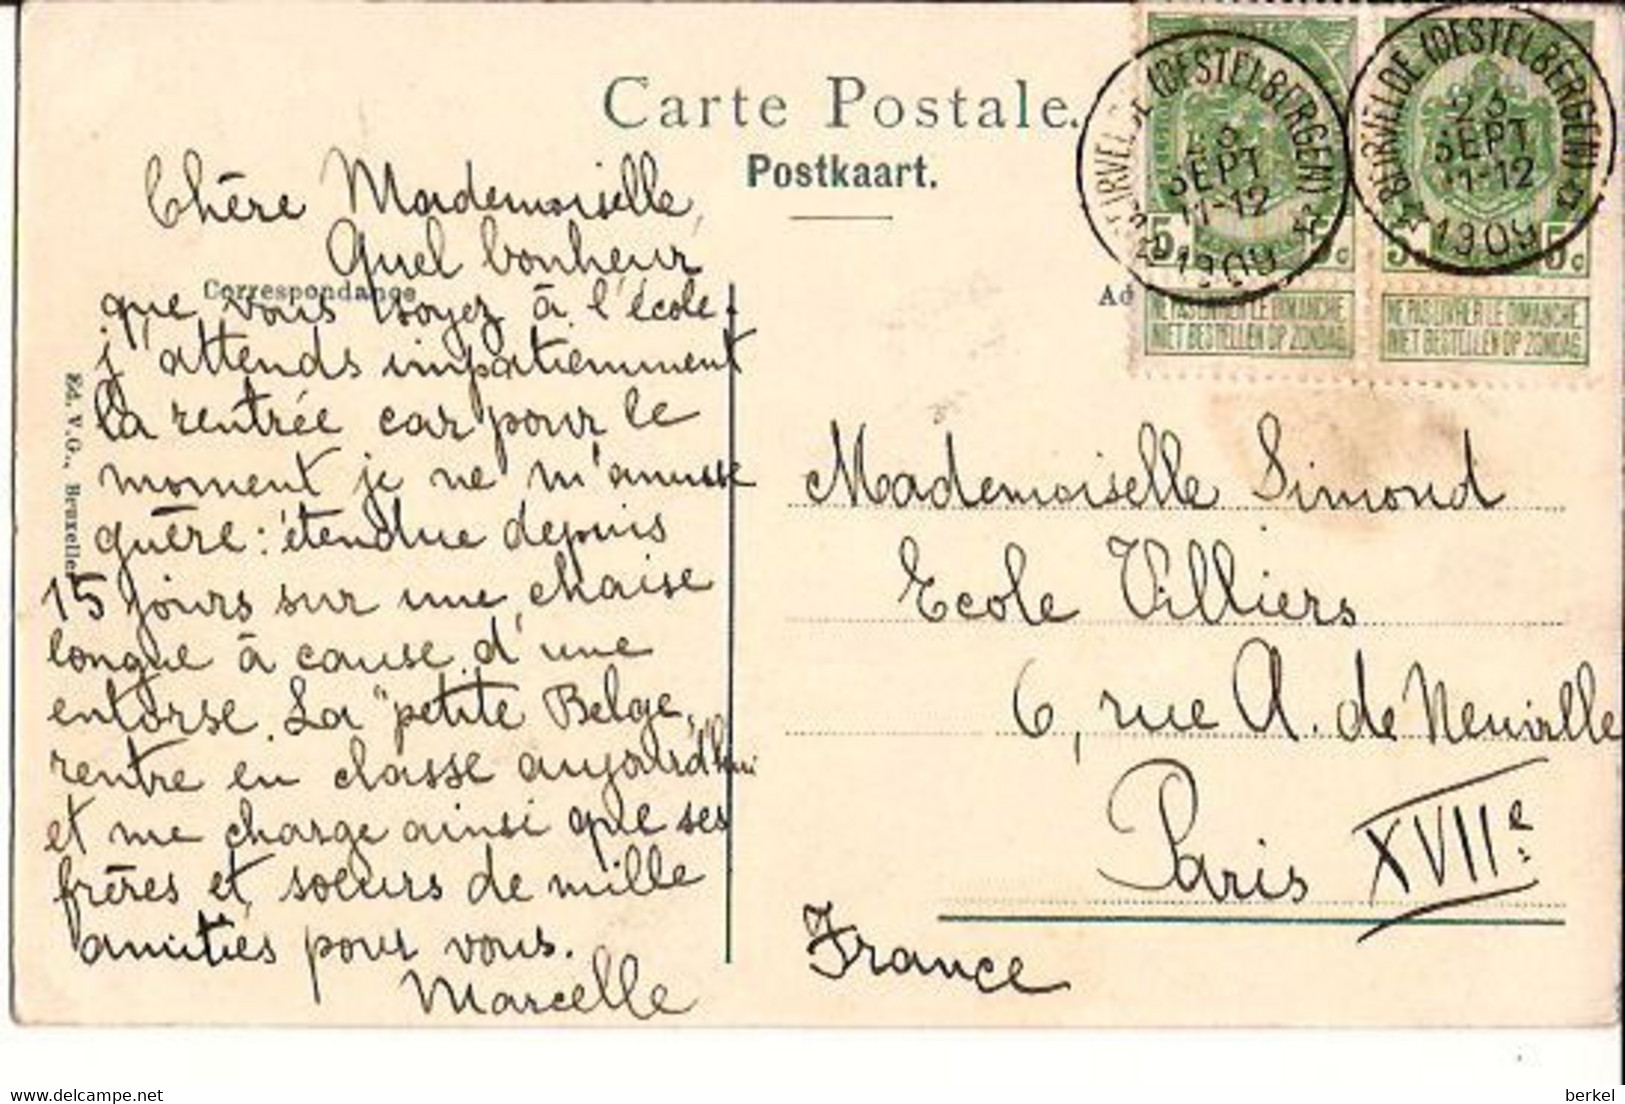 Carte Postale.
Postkaart.
BEIRVELDE (DESTELBERGEN)
23
SEPT
11-12
1909
BEIRVELDE (DESTELBERGEN)
23
SEPT
11-12
1909
5c 5c
5c 5c
NE PAS LIVRER LE DIMANCHE
NIET BESTELLEN OP ZONDAG
NE PAS LIVRER LE DIMANCHE
NIET BESTELLEN OP ZONDAG
Correspondance
Ad
Ed. V.G., Bruxelles
Chère Mademoiselle,
Quel bonheur
que vous soyez à l'école!
j'attends impatiemment
la rentrée car pour le
moment je ne m'amuse
guère: étendue depuis
15 jours sur une chaise
longue à cause d'une
entorse. La "petite Belge"
rentre en classe aujourd'hui
et me charge ainsi que ses
frères et soeurs de mille
amitiés pour vous.
Marcelle
Mademoiselle Simond
Ecole Villiers
6, rue A. de Neuville
Paris XVIIe
France
delcampe.net
berkel